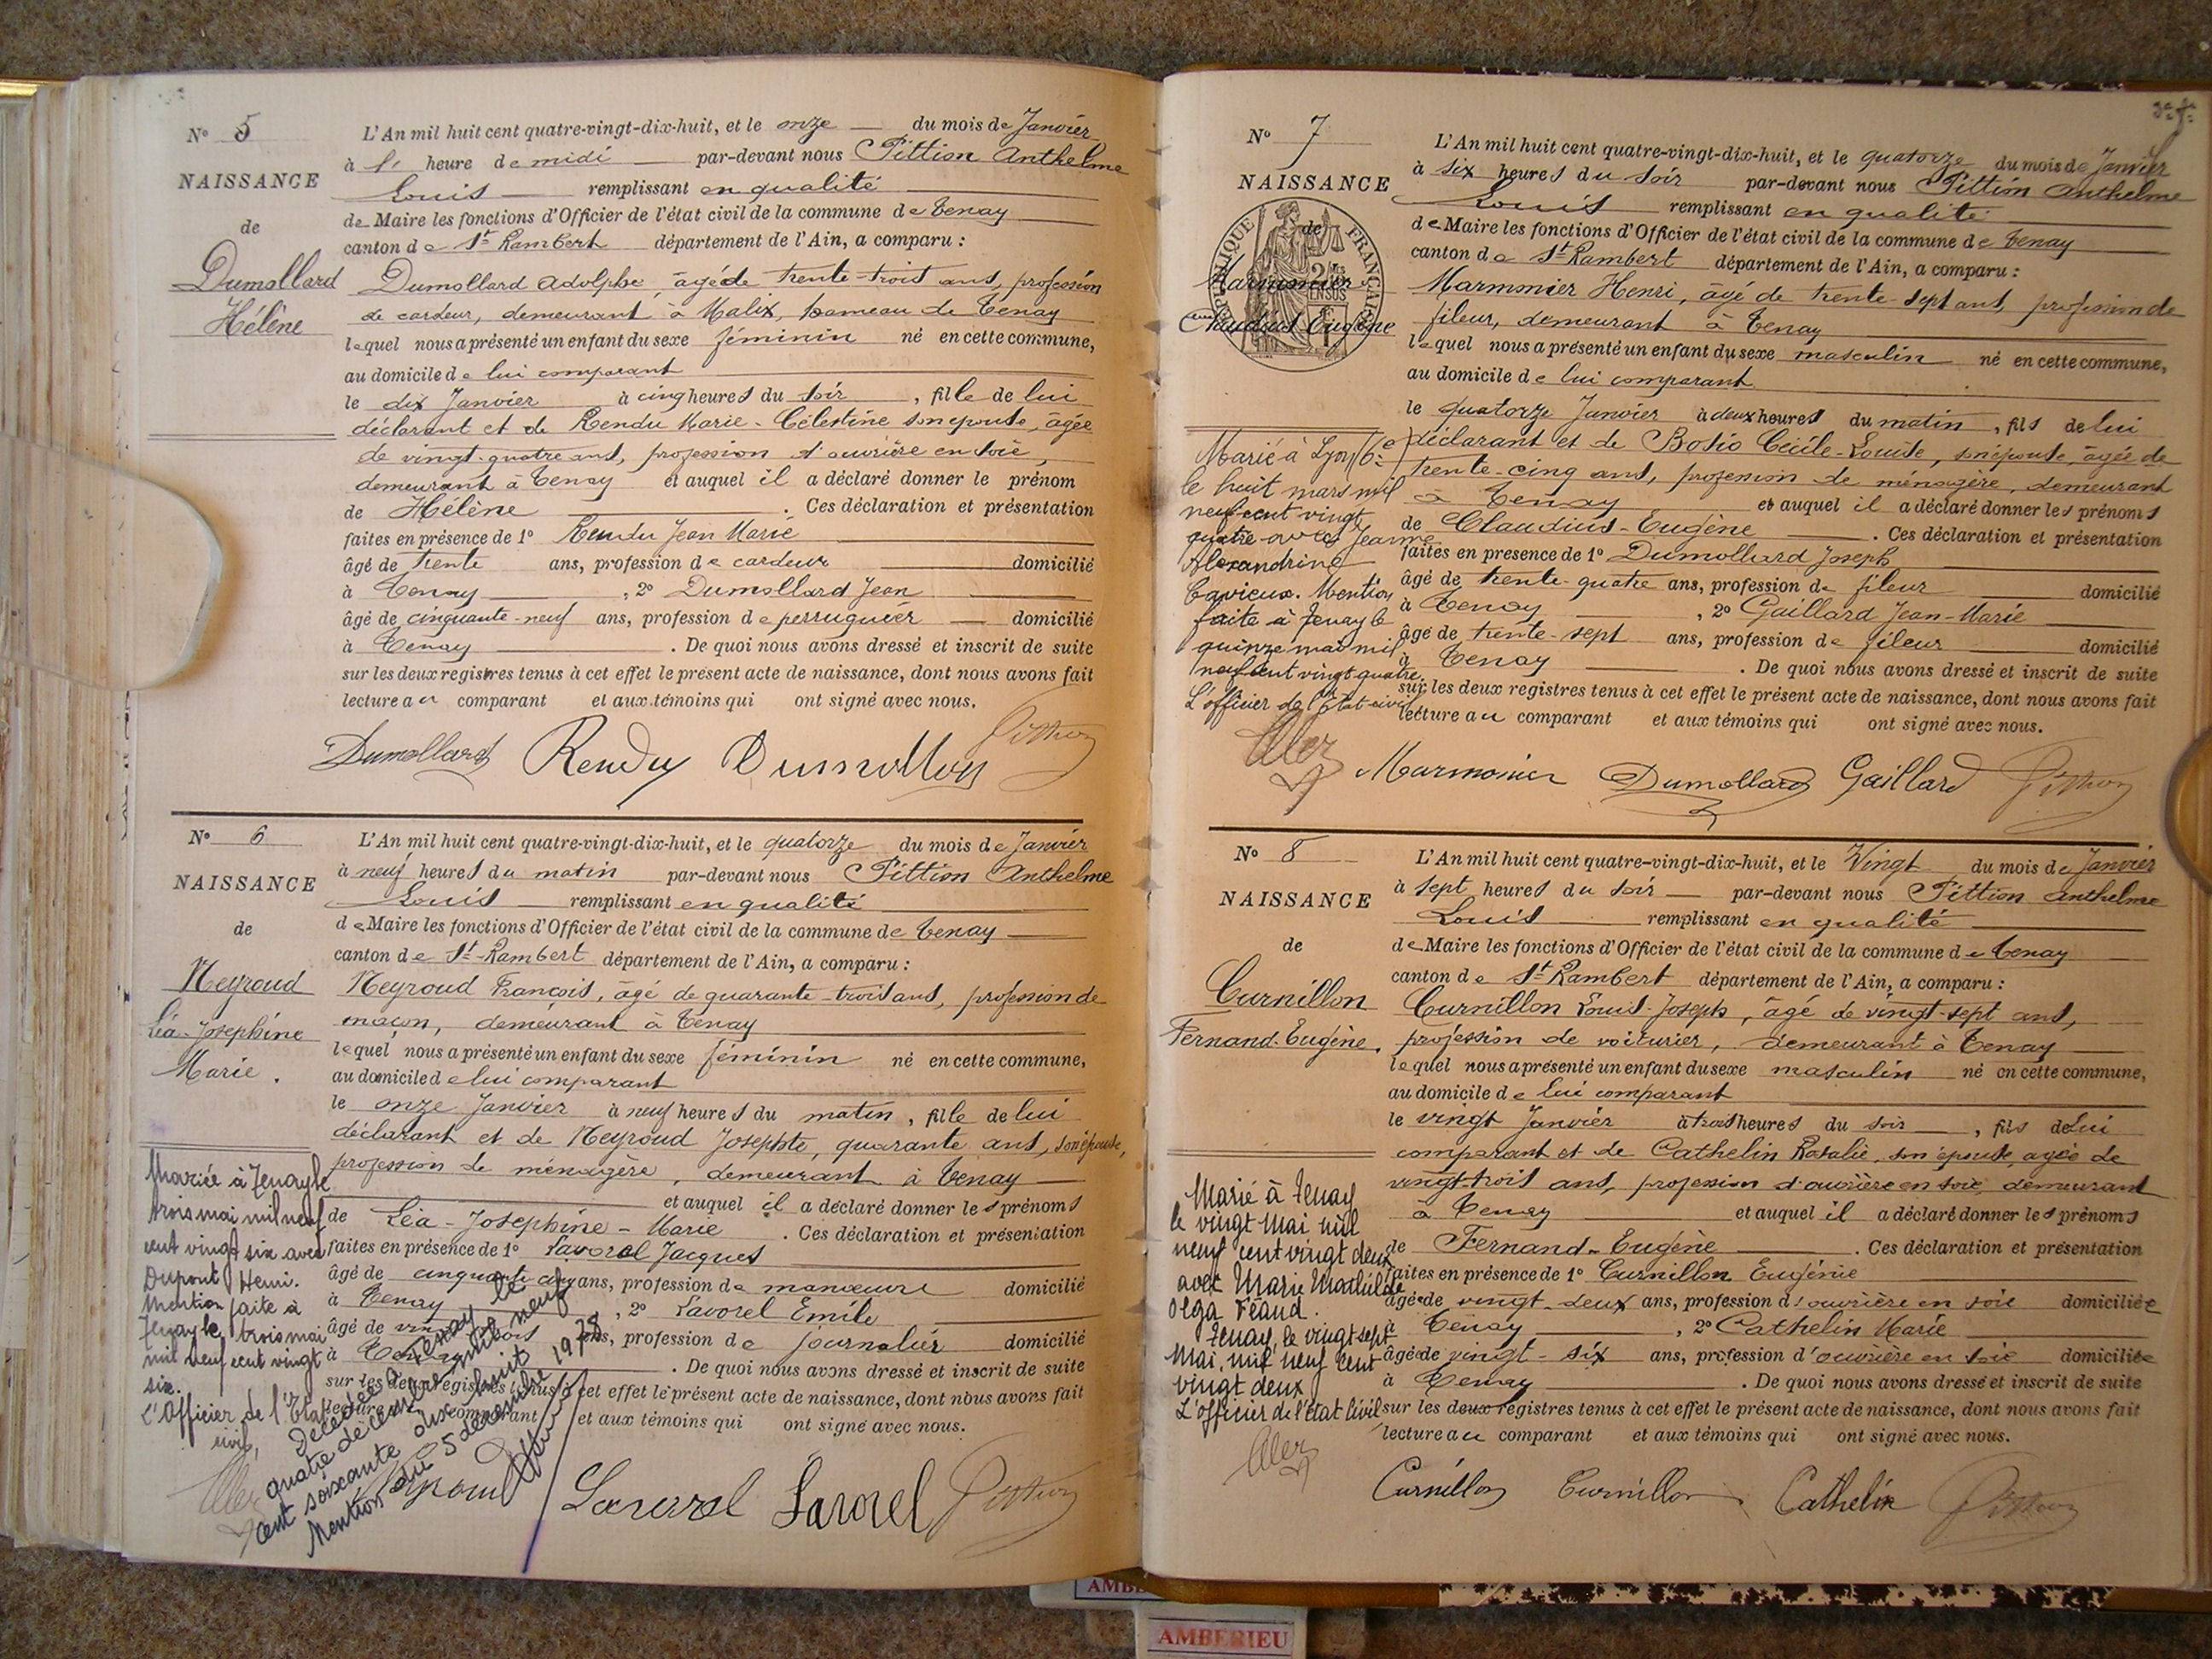 N° 5
NAISSANCE
de
Dumollard
Hélène
L'An mil huit cent quatre-vingt-dix-huit, et le onze du mois de Janvier
à l' heure de midi par-devant nous Pittion Anthelme
Louis remplissant en qualité
de Maire les fonctions d'Officier de l'état civil de la commune de Tenay
canton de St Rambert département de l'Ain, a comparu :
Dumollard Adolphe, âgé de trente-trois ans, profession
de cardeur, demeurant à Malix, hameau de Tenay
lequel nous a présenté un enfant du sexe féminin né en cette commune,
au domicile de lui comparant
le dix Janvier à cinq heures du soir, fille de lui
déclarant et de Rendu Marie-Célestine son épouse, âgée
de vingt-quatre ans, profession d'ouvrière en soie,
demeurant à Tenay et auquel il a déclaré donner le prénom
de Hélène. Ces déclaration et présentation
faites en présence de 1° Rendu Jean Marie
âgé de trente ans, profession de cardeur domicilié
à Tenay, 2° Dumollard Jean
âgé de cinquante-neuf ans, profession de perruquier domicilié
à Tenay. De quoi nous avons dressé et inscrit de suite
sur les deux registres tenus à cet effet le présent acte de naissance, dont nous avons fait
lecture au comparant et aux témoins qui ont signé avec nous.
Dumollard Rendu Dumollard Pittion
N° 6
NAISSANCE
de
Neyroud
Léa-Josephine
Marie.
L'An mil huit cent quatre-vingt-dix-huit, et le quatorze du mois de Janvier
à neuf heures du matin par-devant nous Pittion Anthelme
Louis remplissant en qualité
de Maire les fonctions d'Officier de l'état civil de la commune de Tenay
canton de St-Rambert département de l'Ain, a comparu :
Neyroud François, âgé de quarante-trois ans, profession de
maçon, demeurant à Tenay
lequel nous a présenté un enfant du sexe féminin né en cette commune,
au domicile de lui comparant
le onze Janvier à neuf heures du matin, fille de lui
déclarant et de Neyroud Josephte, quarante ans, son épouse,
profession de ménagère, demeurant à Tenay
et auquel il a déclaré donner les prénoms
de Léa-Josephine-Marie. Ces déclaration et présentation
faites en présence de 1° Lavorel Jacques
âgé de cinquante cinq ans, profession de manœuvre domicilié
à Tenay, 2° Lavorel Emile
âgé de ans, profession de journalier domicilié
à Tenay. De quoi nous avons dressé et inscrit de suite
sur les deux registres tenus à cet effet le présent acte de naissance, dont nous avons fait
lecture au comparant et aux témoins qui ont signé avec nous.
Mariée à Tenay le
trois mai mil neuf
cent vingt six avec
Dupont Henri.
Mention faite à
Tenay le trois mai
mil neuf cent vingt
six.
L'Officier de l'Etat
civil,
Décédée à Tenay le
quatre décembre mil neuf
cent soixante dix huit
Mention du 5 décembre 1978
Lavorel Lavorel Pittion
N° 7
NAISSANCE
de
RÉPUBLIQUE FRANÇAISE
Marmonier
Claudius Eugène
L'An mil huit cent quatre-vingt-dix-huit, et le quatorze du mois de Janvier
à six heures du soir par-devant nous Pittion Anthelme
Louis remplissant en qualité
de Maire les fonctions d'Officier de l'état civil de la commune de Tenay
canton de St Rambert département de l'Ain, a comparu :
Marmonier Henri, âgé de trente-sept ans, profession de
fileur, demeurant à Tenay
lequel nous a présenté un enfant du sexe masculin né en cette commune,
au domicile de lui comparant
le quatorze Janvier à deux heures du matin, fils de lui
déclarant et de Bosio Cécile-Louise, son épouse, âgée de
trente-cinq ans, profession de ménagère, demeurant
à Tenay et auquel il a déclaré donner les prénoms
de Claudius-Eugène. Ces déclaration et présentation
faites en présence de 1° Dumollard Joseph
âgé de trente-quatre ans, profession de fileur domicilié
à Tenay, 2° Gaillard Jean-Marie
âgé de trente-sept ans, profession de fileur domicilié
à Tenay. De quoi nous avons dressé et inscrit de suite
sur les deux registres tenus à cet effet le présent acte de naissance, dont nous avons fait
lecture au comparant et aux témoins qui ont signé avec nous.
Marié à Lyon (6e)
le huit mars mil
neuf cent vingt
quatre avec Jeanne
Alexandrine
Cavieux. Mention
faite à Tenay le
quinze mai mil
neuf cent vingt quatre.
L'officier de l'Etat civil
Marmonier Dumollard Gaillard Pittion
N° 8
NAISSANCE
de
Curnillon
Fernand-Eugène.
L'An mil huit cent quatre-vingt-dix-huit, et le Vingt du mois de Janvier
à sept heures du soir par-devant nous Pittion Anthelme
Louis remplissant en qualité
de Maire les fonctions d'Officier de l'état civil de la commune de Tenay
canton de St Rambert département de l'Ain, a comparu :
Curnillon Louis-Joseph, âgé de vingt-sept ans,
profession de voiturier, demeurant à Tenay
lequel nous a présenté un enfant du sexe masculin né en cette commune,
au domicile de lui comparant
le vingt Janvier à trois heures du soir, fils de lui
comparant et de Cathelin Rosalie, son épouse, agée de
vingt-trois ans, profession d'ouvrière en soie, demeurant
à Tenay et auquel il a déclaré donner les prénoms
de Fernand-Eugène. Ces déclaration et présentation
faites en présence de 1° Curnillon Eugénie
âgée de vingt-deux ans, profession d'ouvrière en soie domiciliée
à Tenay, 2° Cathelin Marie
âgée de vingt-six ans, profession d'ouvrière en soie domiciliée
à Tenay. De quoi nous avons dressé et inscrit de suite
sur les deux registres tenus à cet effet le présent acte de naissance, dont nous avons fait
lecture au comparant et aux témoins qui ont signé avec nous.
Marié à Tenay
le vingt Mai mil
neuf cent vingt deux
avec Marie Mathilde
Olga Féaud.
Tenay, le vingt sept
Mai, mil neuf cent
vingt deux
L'officier de l'état Civil
Curnillon Curnillon Cathelin Pittion
AMBERIEU